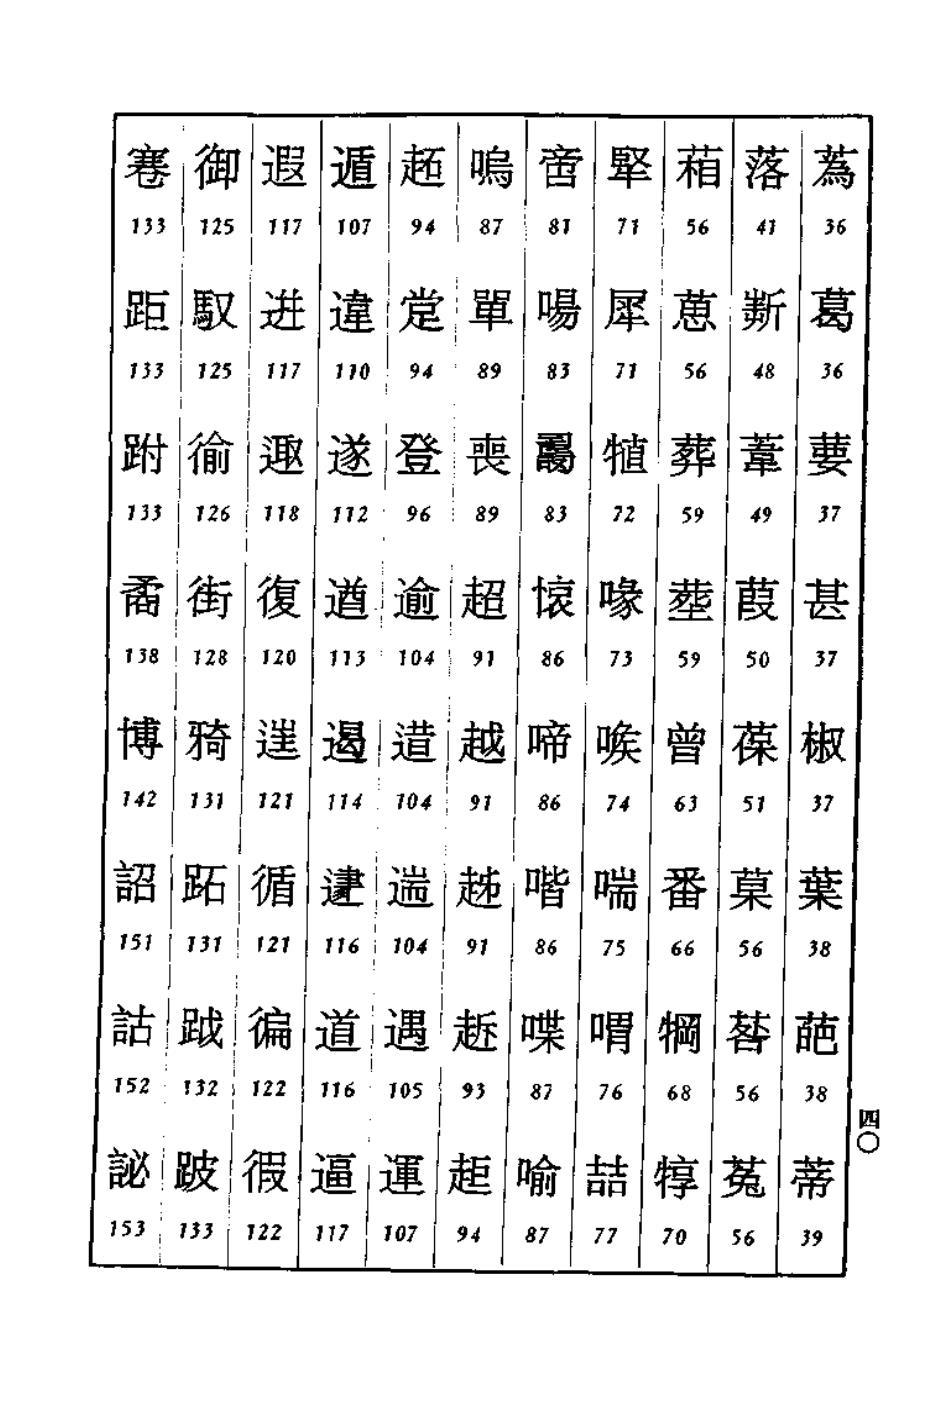 蒍 36 葛 36 葽 37 甚 37 椒 37 葉 38 葩 38 蒂 39
落 41 48 葦 49 葭 50 葆 51 56 56 菟 56
56 56 葬 59 59 曾 63 番 66 犅 68 犉 70
71 犀 71 犆 72 喙 73 喉 74 喘 75 喟 76 喆 77
啻 81 啺 83 83 86 啼 86 喈 86 喋 87 喻 87
嗚 87 單 89 喪 89 超 91 越 91 91 93 94
94 94 登 96 逾 104 逪 104 遄 104 遇 105 運 107
遁 107 違 110 遂 112 遒 113 遏 114 116 道 116 逼 117
遐 117 迸 117 118 復 120 121 循 121 徧 122 徦 122
御 125 馭 125 126 街 128 131 跖 131 132 跛 133
133 距 133 跗 133 矞 138 博 142 詔 151 詁 152 153
四〇